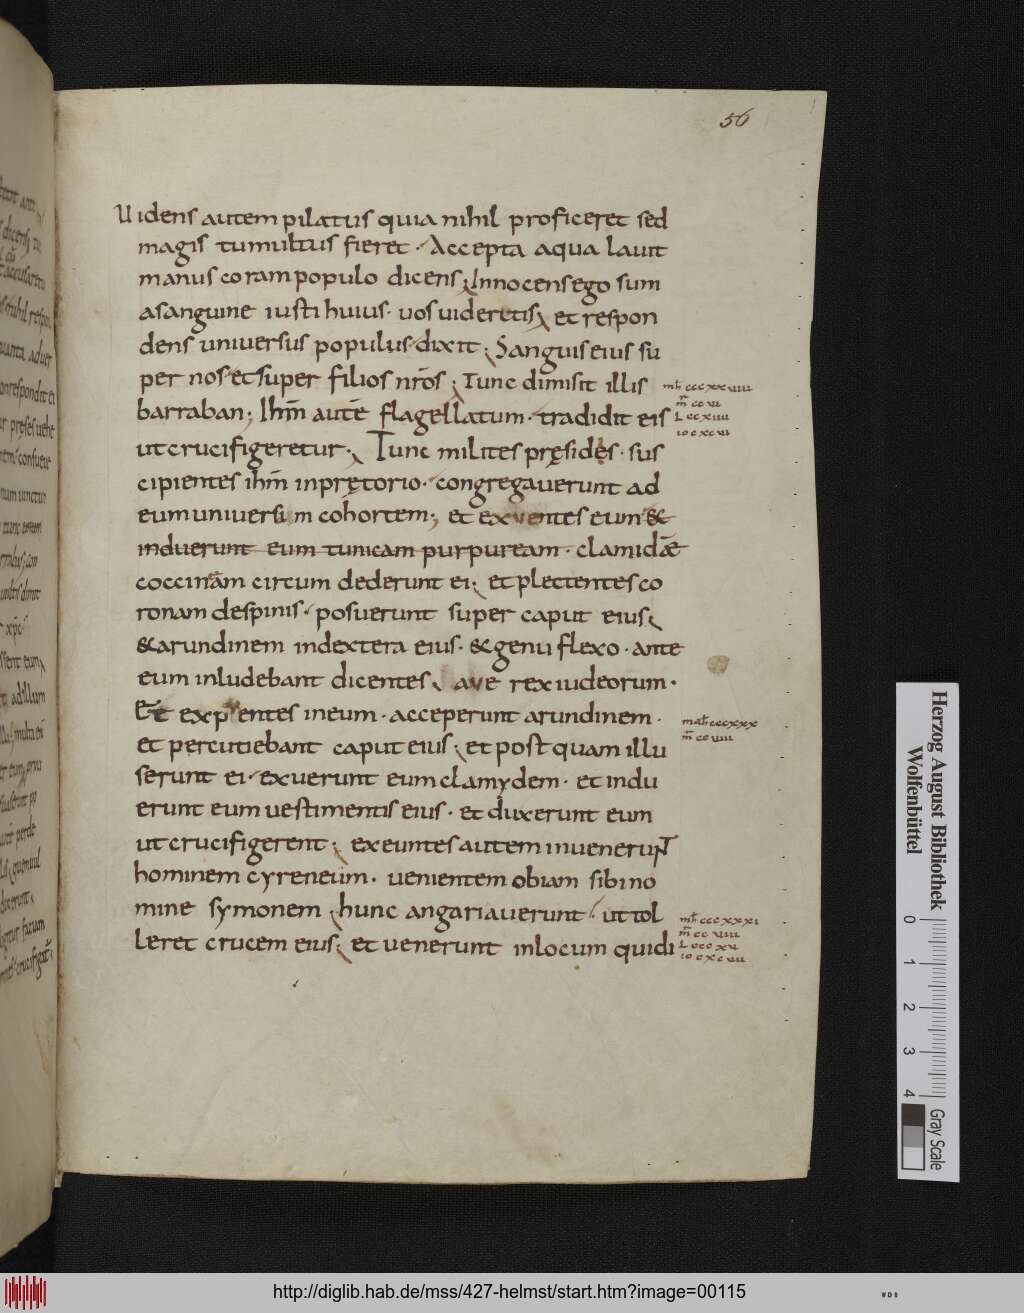 56
Uidens autem pilatus quia nihil proficeret sed
magis tumultus fieret · Accepta aqua lauit
manus coram populo dicens ; Innocens ego sum
a sanguine iusti huius · uos uideretis ; et respon
dens uniuersus populus · dixit ; Sanguis eius su
per nos · et super filios nr̄os ; Tunc dimisit illis
mt̄ cccxxuiiii
barraban ; Ihm̄ autē flagellatum · tradidit eis
m̄ ccui
L ccxiiii
io cxcui
ut crucifigeretur · Tunc milites pręsides · sus
cipientes ihm̄ in prętorio · congregauerunt ad
eum uniuersum cohortem ; et exuentes eum &
induerunt eum tunicam purpuream · clamidāe
coccinam circum dederunt ei ; et plectentes co
ronam de spinis · posuerunt super caput eius ;
& arundinem in dextera eius · & genu flexo · ante
eum inludebant dicentes ; aue rex iudeorum ·
Et expuentes in eum · acceperunt arundinem ·
mat̄ cccxxx
m̄ ccuiiii
et percutiebant caput eius ; et post quam illu
serunt ei · exuerunt eum clamydem · et indu
erunt eum uestimentis eius · et duxerunt eum
ut crucifigerent ; exeuntes autem inuenerunt
hominem cyreneum · uenientem obiam sibi no
mine symonem ; hunc angariauerunt · ut tol
mt̄ cccxxxi
leret crucem eius ; et uenerunt in locum qui di
m̄ ccuiiii
L cccxu
io cxcuii
Herzog August Bibliothek
Wolfenbüttel
0 1 2 3 4
Gray Scale
http://diglib.hab.de/mss/427-helmst/start.htm?image=00115